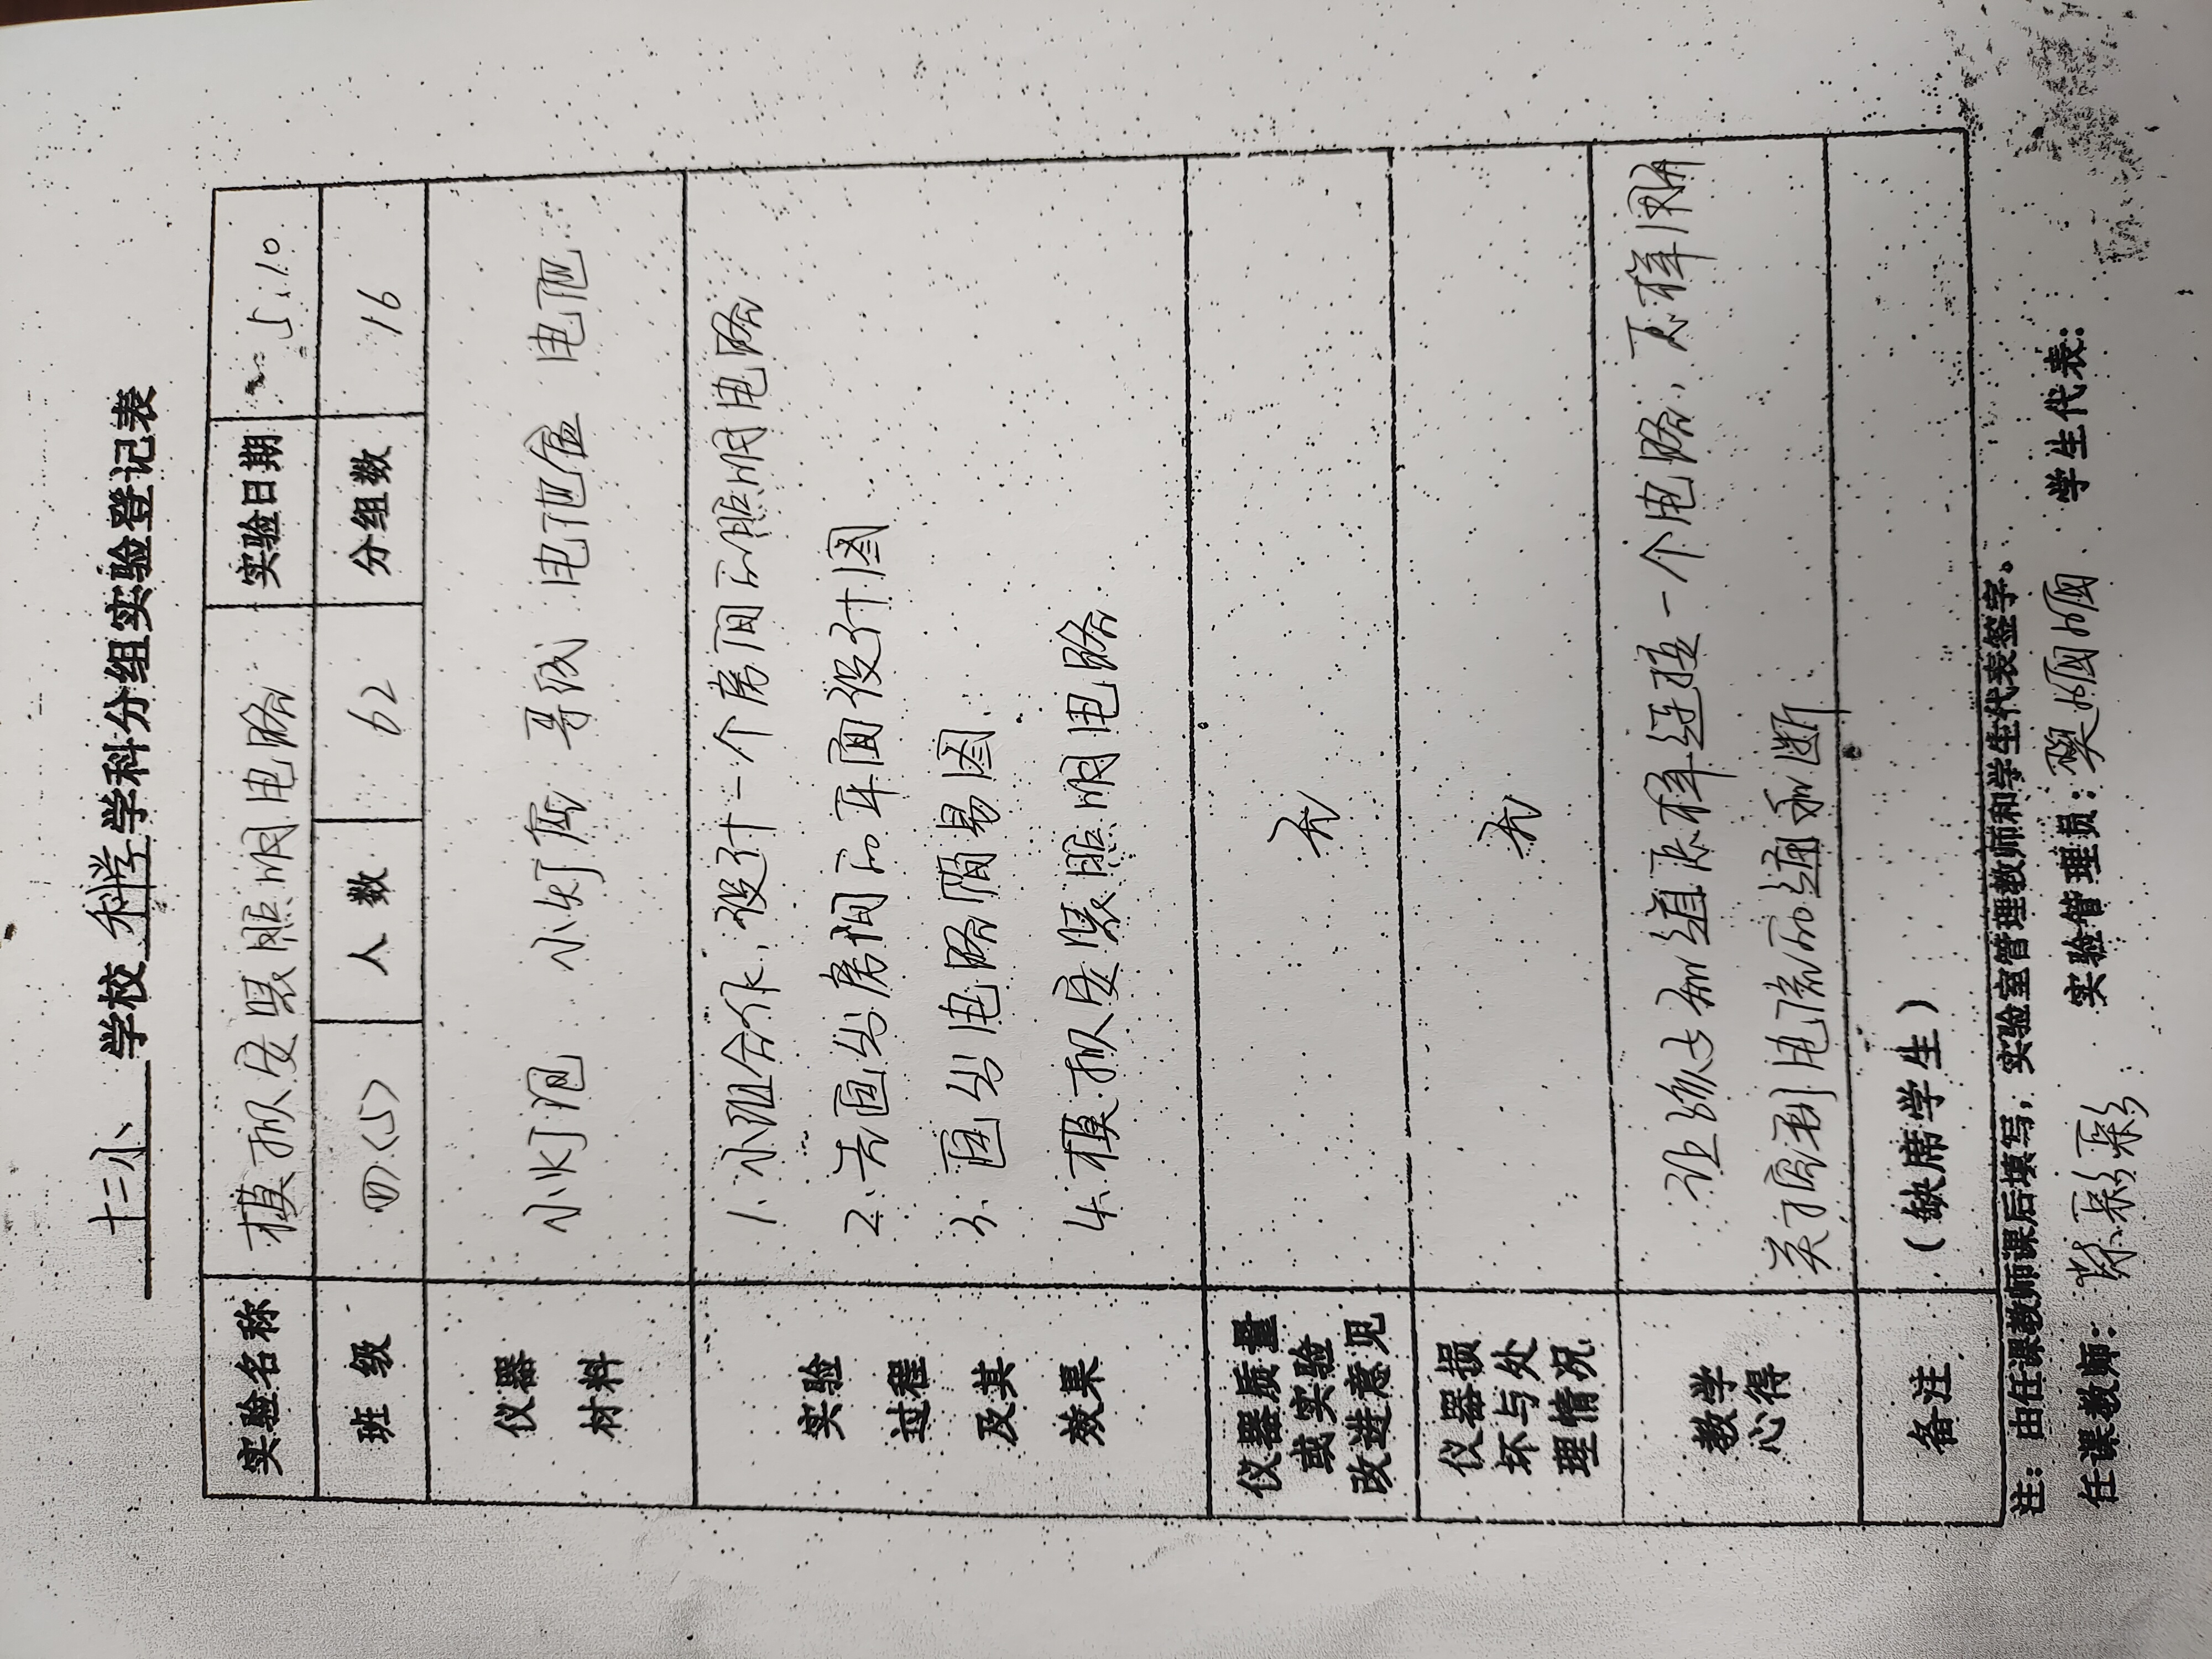 十二小 学校 科学 学科分组实验登记表
实验名称 模拟安装照明电路 实验日期 5.10
班 级 四(5) 人 数 62 分组数 16
仪器
材料
小灯泡 小灯座 导线 电池盒 电池
实验
过程
及其
效果
1. 小组合作,设计一个房间的照明电路
2. 先画出房间的平面设计图
3. 画出电路简易图
4. 模拟安装照明电路
仪器质量
或实验
改进意见
无
仪器损
坏与处
理情况
无
教学
心得
让孩子们知道怎样连接一个电路,怎样用开
关控制电流的通和断
备注
(缺席学生)
注:由任课教师课后填写,实验室管理教师和学生代表签字。
任课教师: 实验管理员: 学生代表: